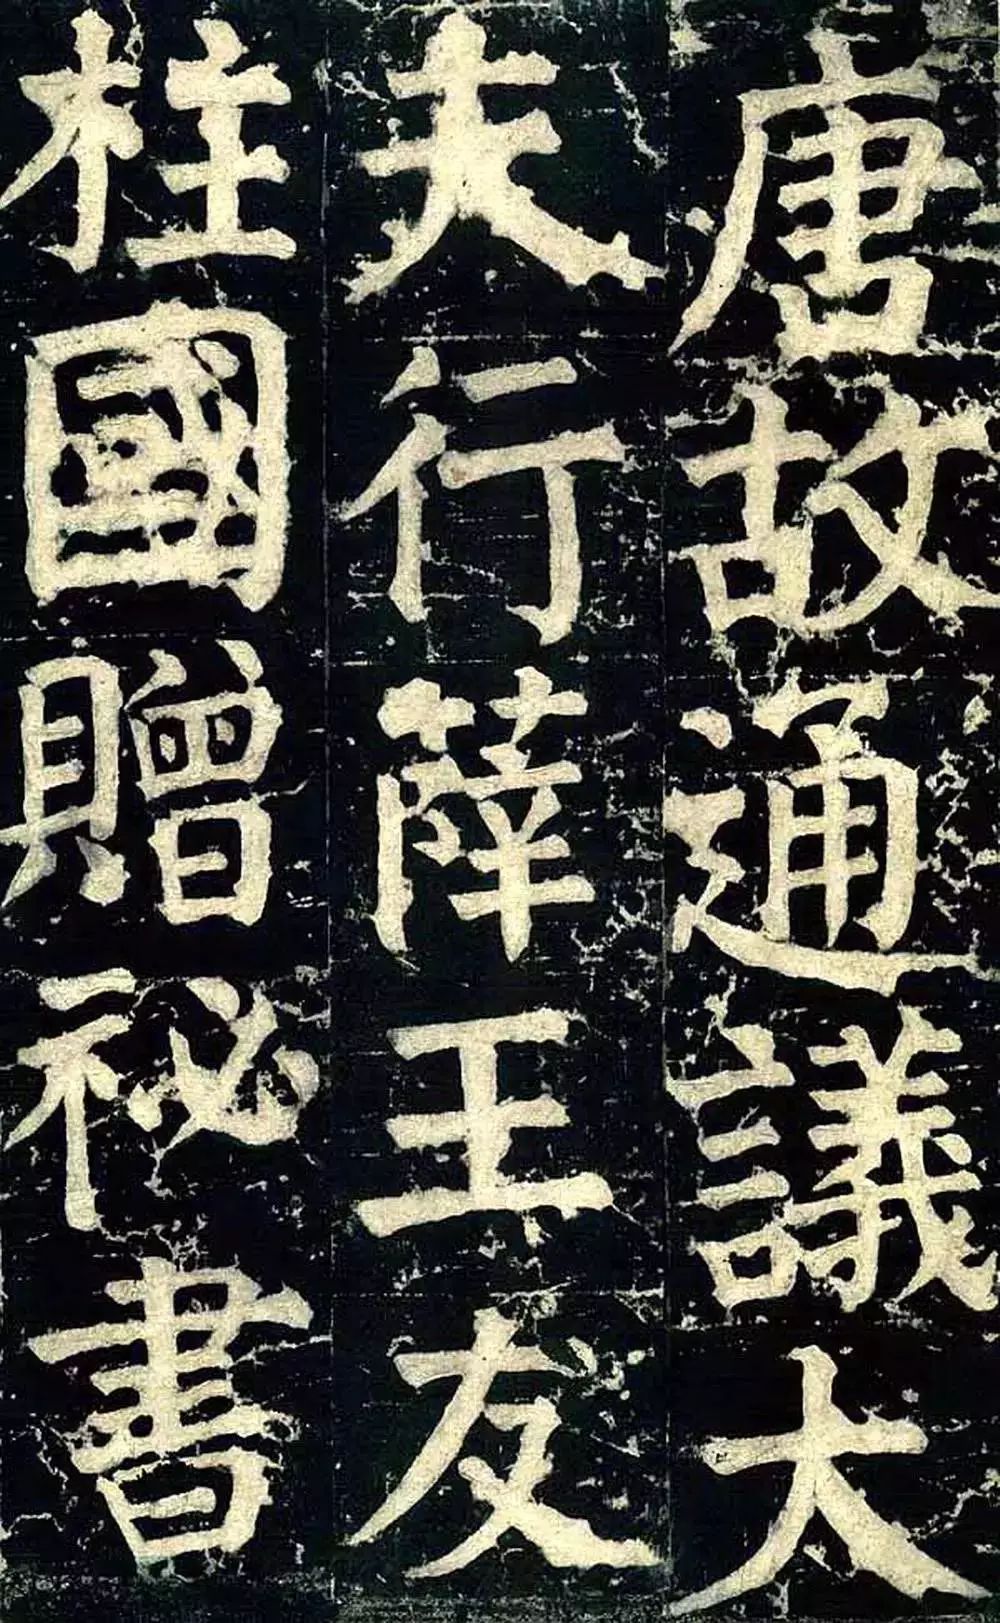 唐故通議大
夫行薛王友
柱國贈祕書